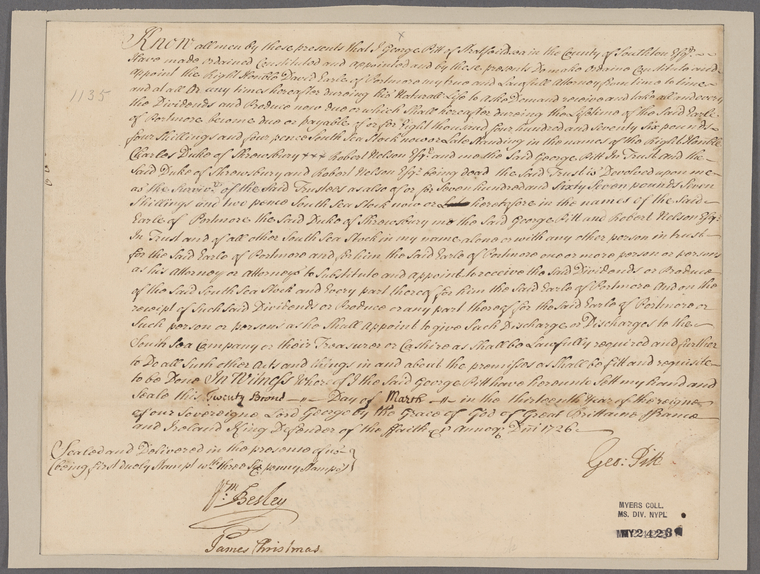 Know all men by these presents that I George Pitt of Stratfieldsea in the County of Southton Esqr.
Have made ordained Constituted and appointed and by these presents Do make ordaine Constitute and
appoint the Right Honble David Earle of Portmore my true and Lawfull Attorney from time to time
and at all Or any times hereafter dureing his Naturall Life to Aske Demand receive and take all and every
1135
the Dividends and Produce now due or which Shall hereafter dureing the Lifetime of the Said Earle
of Portmore become due or payable of or for Eight thousand four hundred and Seventy Six pounds
four Shillings and four pence South Sea Stock now or Late Standing in the names of the Right Honble
Charles Duke of Shrewsbury Robert Nelson Esqr. and me the Said George Pitt In Trust and the
Said Duke of Shrewsbury and Robert Nelson Esqr. being dead the Said Trust is Devolved upon me
as the Survivor of the Said Trustees as also of or for Seven hundred and Sixty Seven pounds Seven
Shillings and two pence South Sea Stock now or heretofore in the names of the Said
Earle of Portmore the Said Duke of Shrewsbury me the Said George Pitt and Robert Nelson Esqr.
In Trust and of all other South Sea Stock in my name alone or with any other person in trust
for the Said Earle of Portmore and for him the Said Earle of Portmore one or more person or persons
as his Attorney or attorneys to Substitute and appoint to receive the Said Dividends or Produce
of the Said South Sea Stock and Every part thereof for him the Said Earle of Portmore And on the
receipt of Such Said Dividends or Produce or any part thereof for the Said Earle of Portmore or
Such person or persons as he Shall Appoint to give Such Discharge or Discharges to the
South Sea Company or their Treasurer or Cashire as Shall be Lawfully required and further
to Do all Such other Acts and things in and about the premisses as Shall be fitt and requisite
to be Done In Witness whereof I the Said George Pitt have hereunto Sett my hand and
Seale this Twenty Second Day of March in the thirteenth Year of the reigne
of our Sovereigne Lord George by the Grace of God of Great Brittaine ffrance
and Ireland King Defender of the ffaith &c Annoq Dni 1726.
Sealed and Delivered in the presence of us
(being first duely Stampt wth. three Six penny Stamps)
Geo: Pitt
Wm. Besley
James Christmas
MYERS COLL.
MS. DIV. NYPL